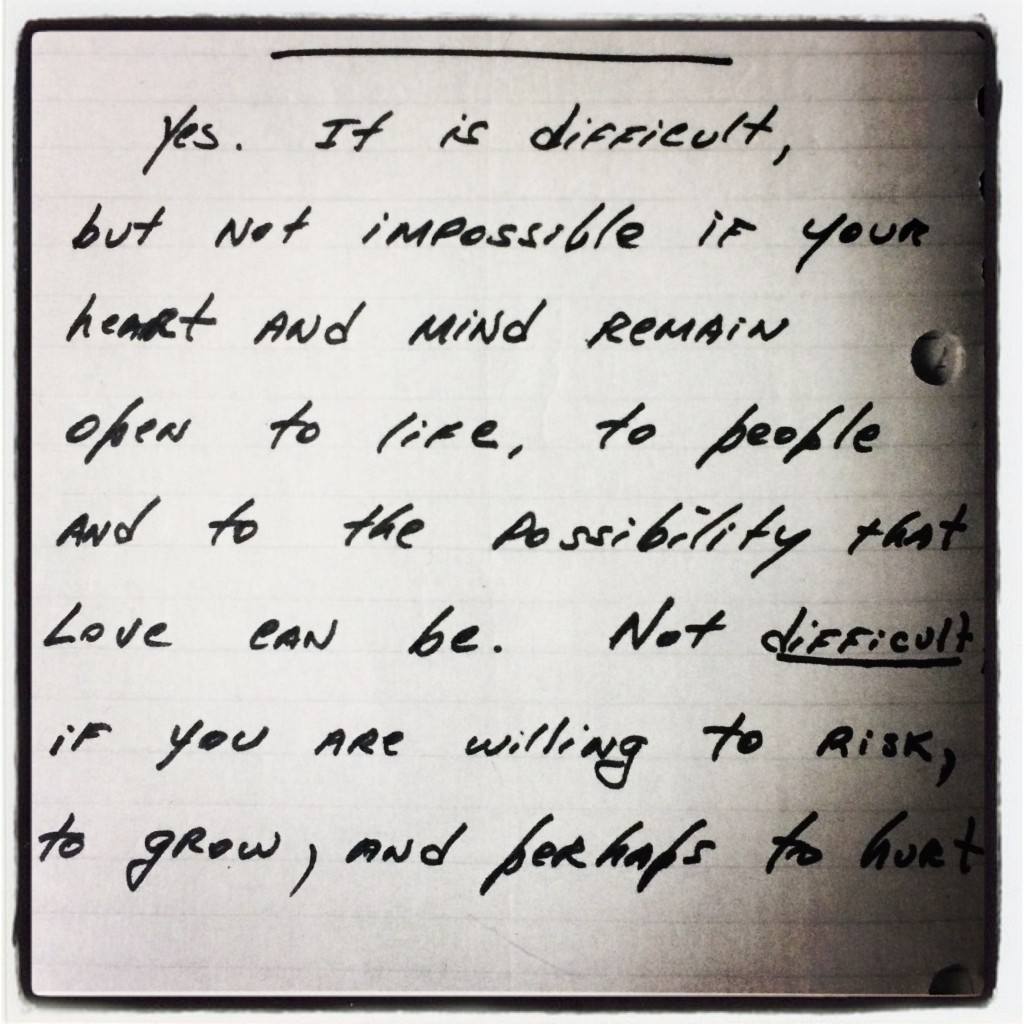 Yes. It is difficult,
but not impossible if your
heart and mind remain
open to life, to people
and to the possibility that
Love can be. Not difficult
if you are willing to risk,
to grow, and perhaps to hurt